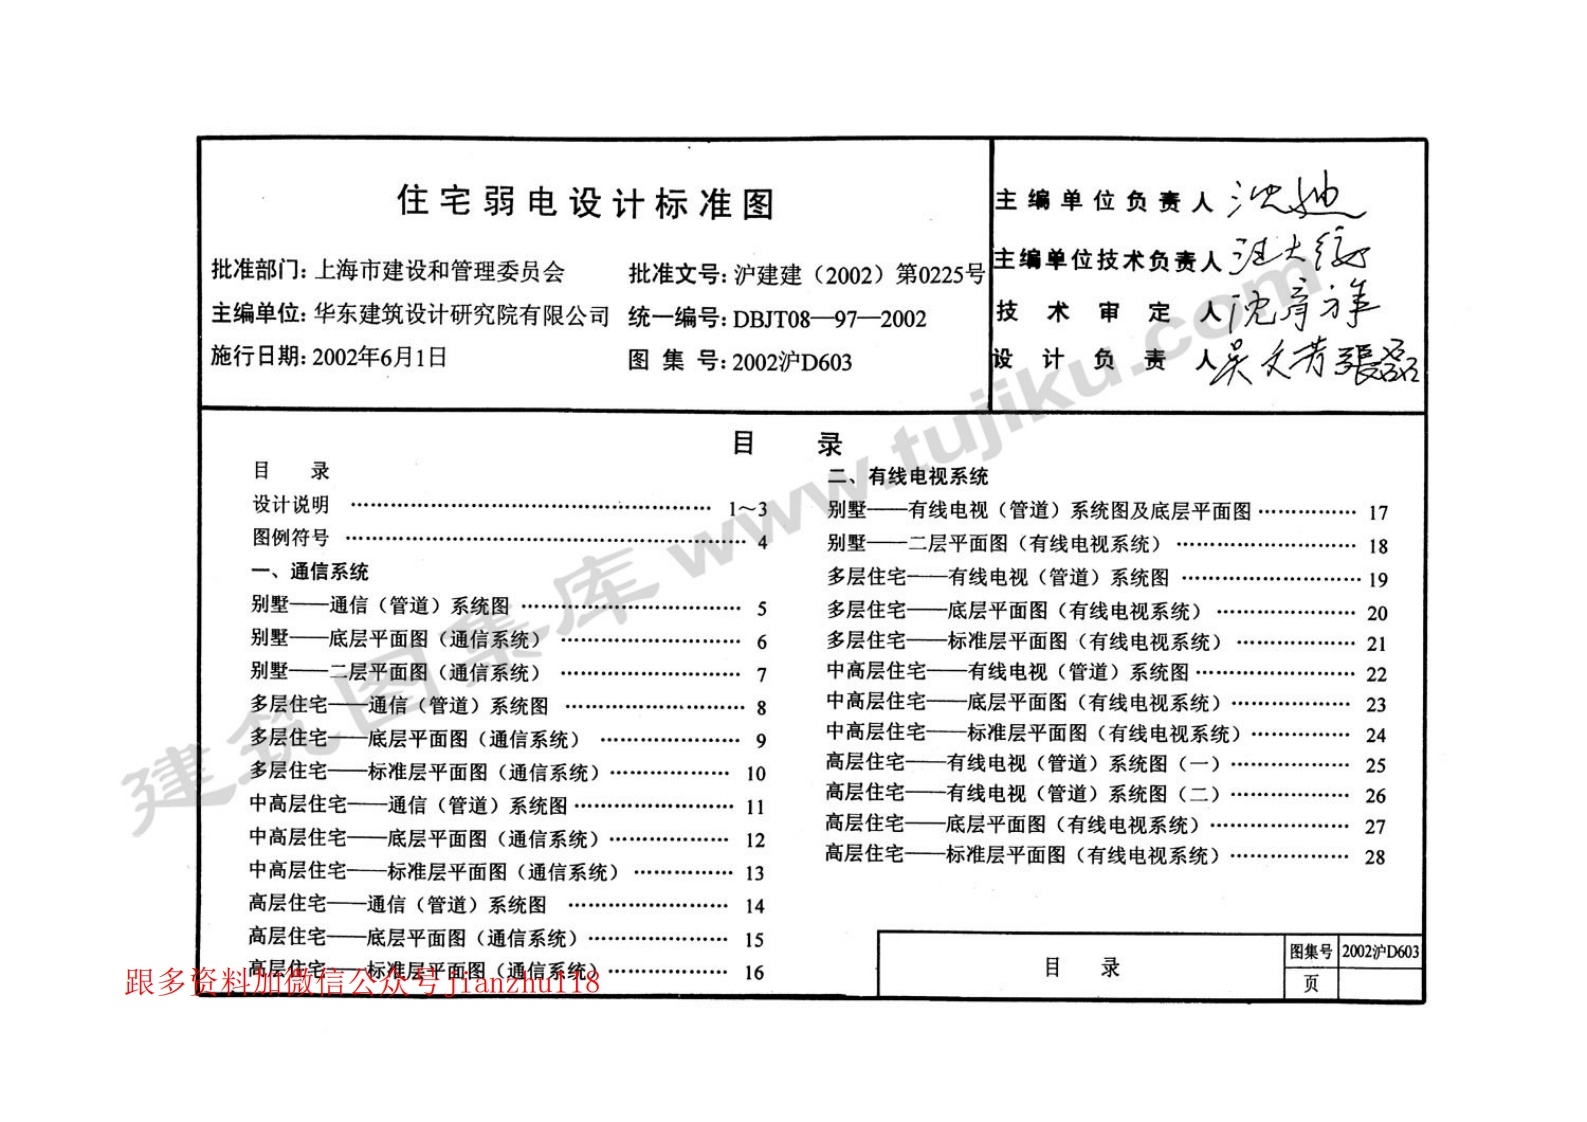 住宅弱电设计标准图
批准部门: 上海市建设和管理委员会
批准文号: 沪建建（2002）第0225号
主编单位: 华东建筑设计研究院有限公司
统一编号: DBJT08—97—2002
施行日期: 2002年6月1日
图 集 号: 2002沪D603
主编单位负责人
主编单位技术负责人
技术审定人
设计负责人 吴文芳
目 录
目 录
设计说明 …………………………………… 1～3
图例符号 …………………………………… 4
一、通信系统
别墅——通信（管道）系统图 …………………… 5
别墅——底层平面图（通信系统） ………………… 6
别墅——二层平面图（通信系统） ………………… 7
多层住宅——通信（管道）系统图 ………………… 8
多层住宅——底层平面图（通信系统） …………… 9
多层住宅——标准层平面图（通信系统） ………… 10
中高层住宅——通信（管道）系统图 ……………… 11
中高层住宅——底层平面图（通信系统） ………… 12
中高层住宅——标准层平面图（通信系统） ……… 13
高层住宅——通信（管道）系统图 ……………… 14
高层住宅——底层平面图（通信系统） …………… 15
高层住宅——标准层平面图（通信系统） ………… 16
二、有线电视系统
别墅——有线电视（管道）系统图及底层平面图 …………… 17
别墅——二层平面图（有线电视系统） ……………… 18
多层住宅——有线电视（管道）系统图 ……………… 19
多层住宅——底层平面图（有线电视系统） ………… 20
多层住宅——标准层平面图（有线电视系统） ………… 21
中高层住宅——有线电视（管道）系统图 …………… 22
中高层住宅——底层平面图（有线电视系统） ………… 23
中高层住宅——标准层平面图（有线电视系统） ……… 24
高层住宅——有线电视（管道）系统图（一） ………… 25
高层住宅——有线电视（管道）系统图（二） ………… 26
高层住宅——底层平面图（有线电视系统） …………… 27
高层住宅——标准层平面图（有线电视系统） ………… 28
目 录
图集号 2002沪D603
页
建筑图集库 www.tujiku.com
跟多资料加微信公众号jianzhu118